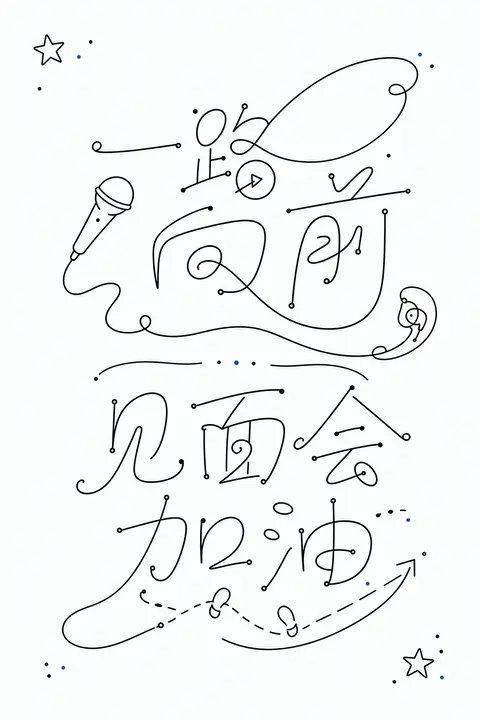 一路
向前
见面会
加油